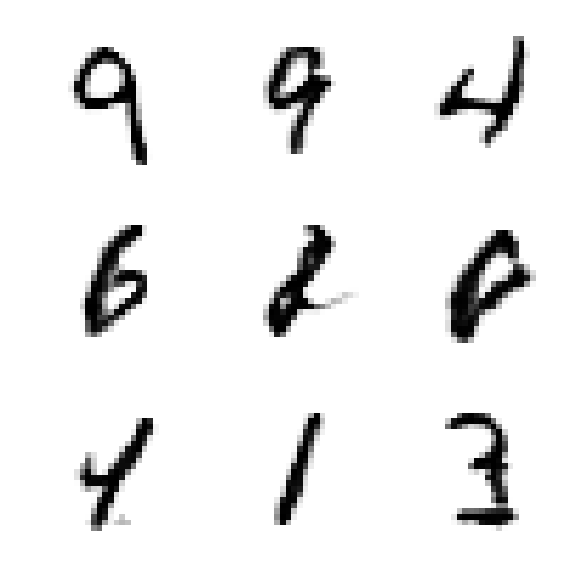 9 9 4
6 2 0
4 1 3